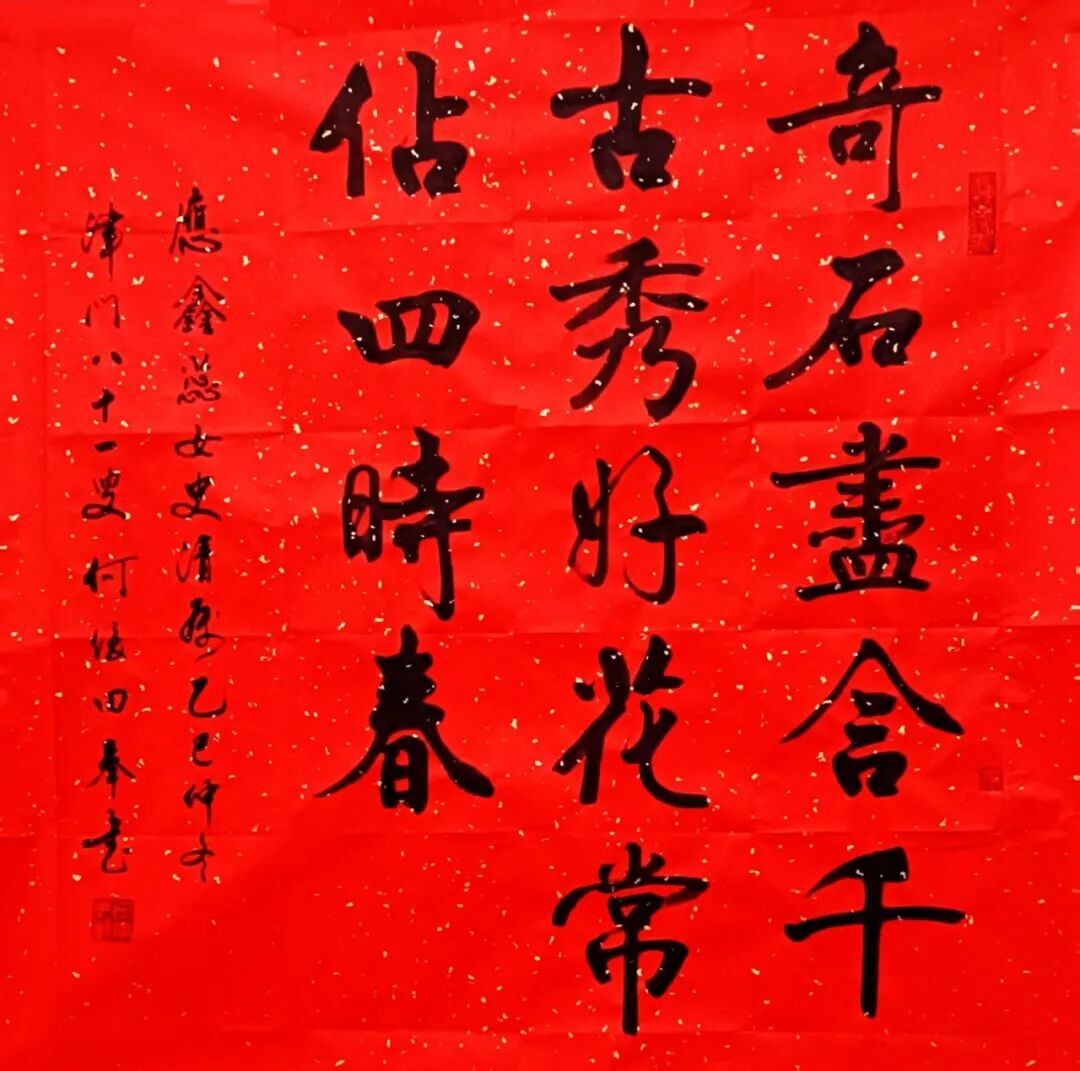 奇石盡含千
古秀好花常
佔四時春
應鑫蕊女史清屬乙巳仲冬
津門八十一叟何俊田奉書